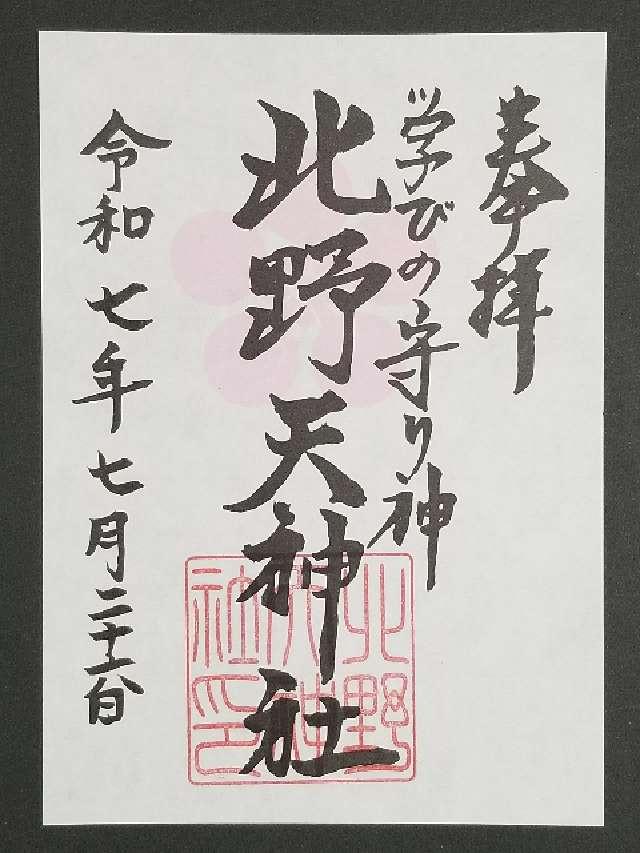 奉拝
学びの守り神
北野天神社
令和七年七月二十一日
北野
天神
社印